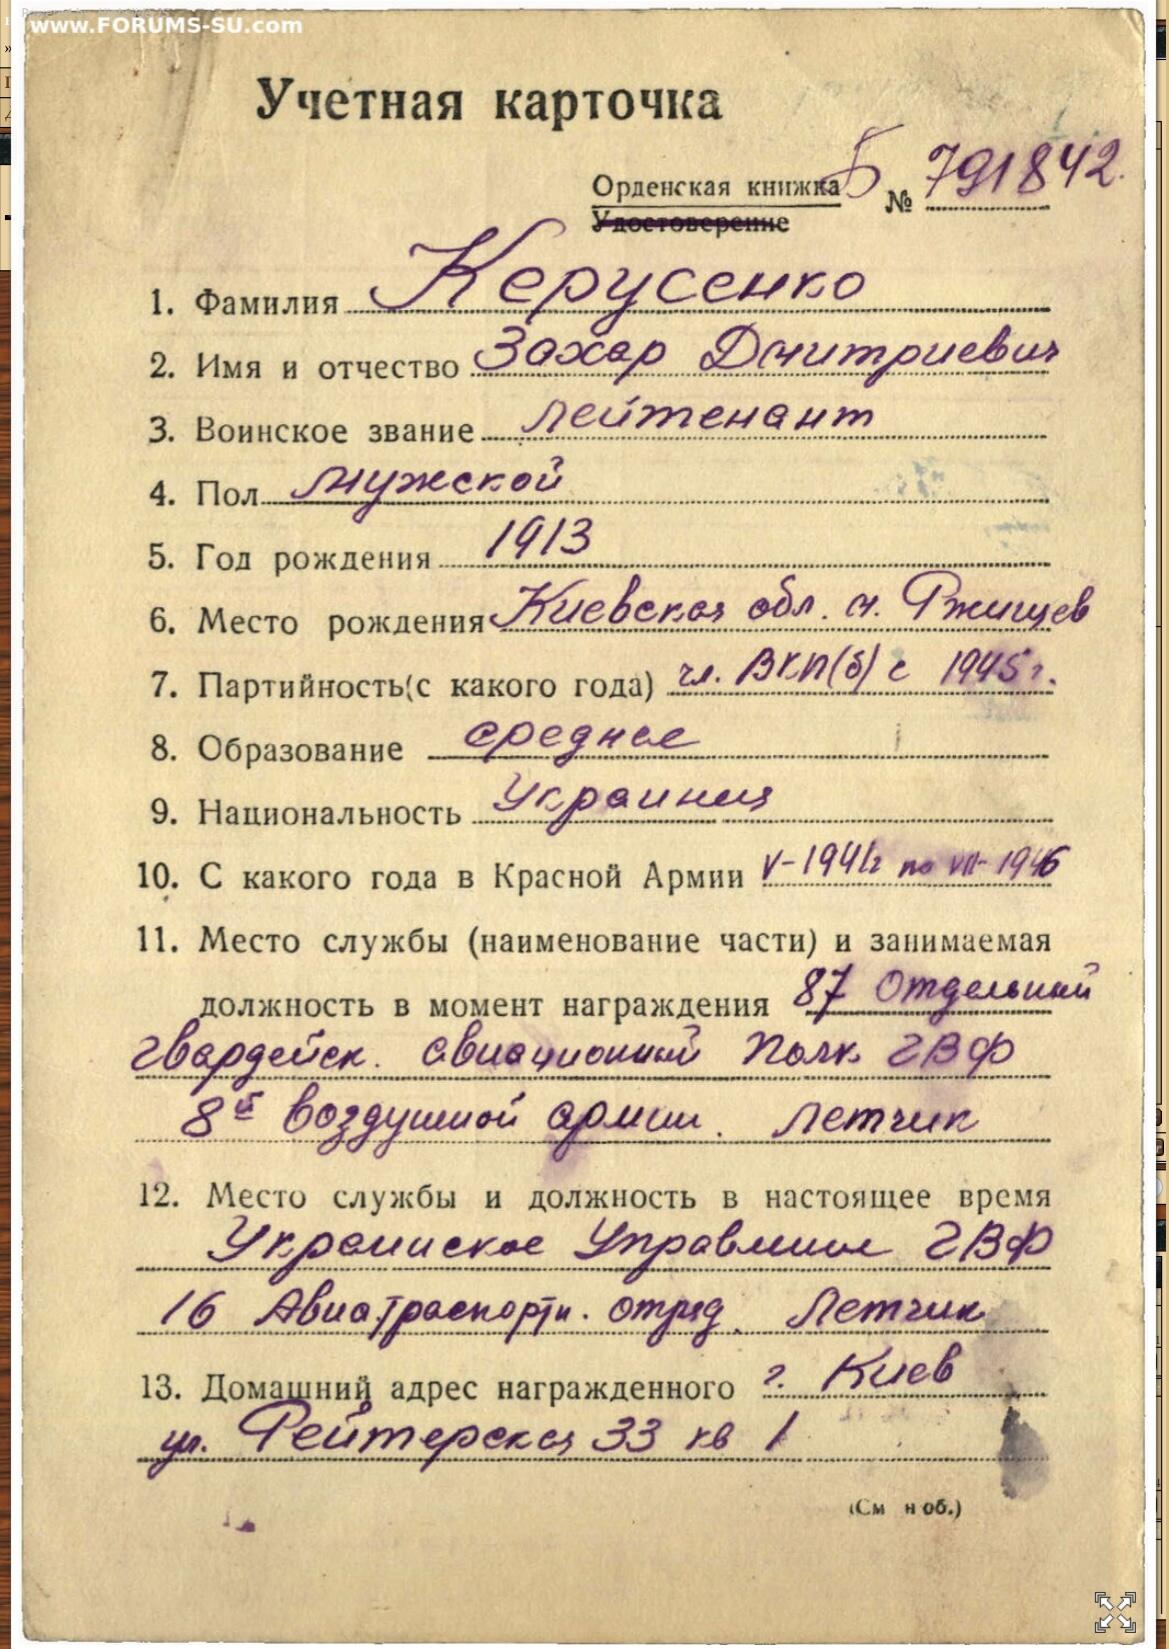 www.FORUMS-SU.com
Учетная карточка
Орденская книжка Б № 791842.
Удостоверение
1. Фамилия Керусенко
2. Имя и отчество Захар Дмитриевич
3. Воинское звание лейтенант
4. Пол мужской
5. Год рождения 1913
6. Место рождения Киевская обл. м. Ржищев
7. Партийность(с какого года) чл. ВКП(б) с 1945 г.
8. Образование среднее
9. Национальность Украинец
10. С какого года в Красной Армии V-1941г по VII-1946
11. Место службы (наименование части) и занимаемая
должность в момент награждения 87 отдельный
гвардейск. авиационный полк ГВФ
8й воздушной армии. летчик
12. Место службы и должность в настоящее время
Украинское Управление ГВФ
16 Авиатраспортн. отряд. Летчик
13. Домашний адрес награжденного г. Киев
ул. Рейтерская 33 кв 1
(См н об.)